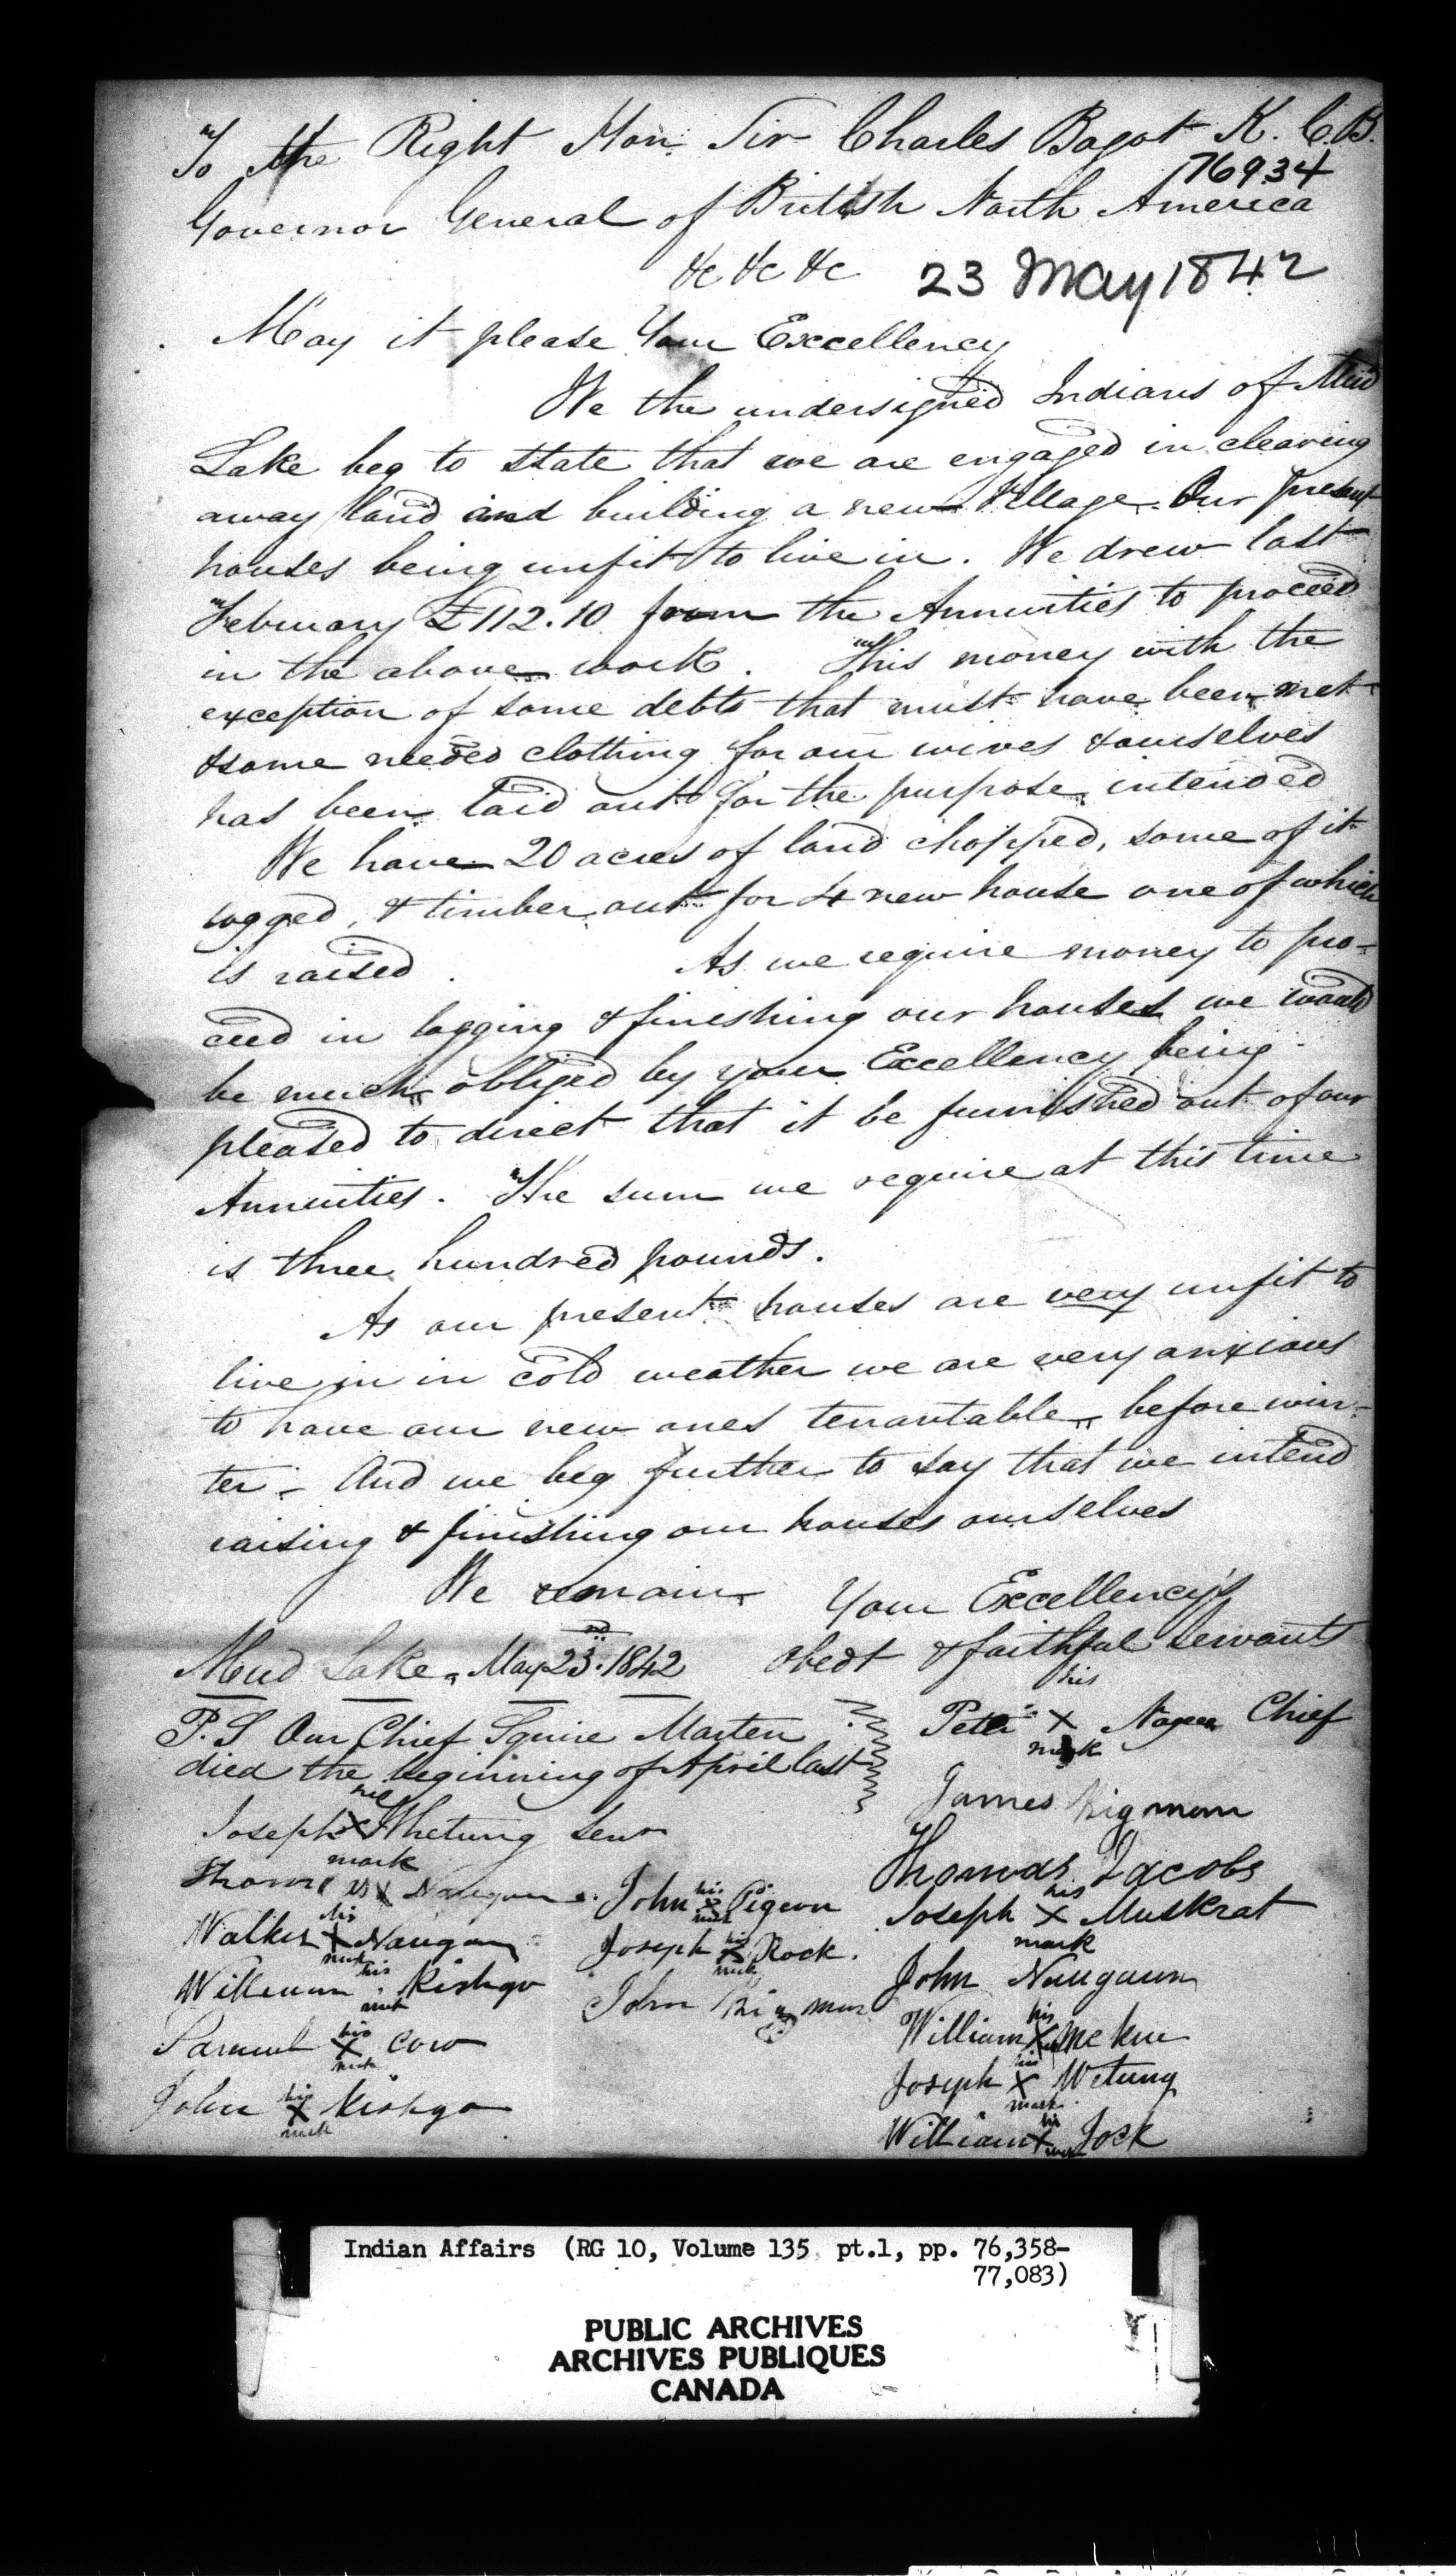 To the Right Hon: Sir Charles Bagot K.C.B.
76934
Governor General of British North America
&c &c &c 23 May 1842
May it please Your Excellency
We the undersigned Indians of Mud
Lake beg to state that we are engaged in clearing
away land and building a new Village. Our present
houses being unfit to live in. We drew last
February £112.10 from the Annuities to proceed
in the above work. This money with the
exception of some debts that must have been met
& some needed clothing for our wives & ourselves
has been laid out for the purpose intended
We have 20 acres of land chopped, some of it
logged, & timber out for 4 new house one of which
is raised. As we require money to pro-
ceed in logging & finishing our houses we would
be much obliged by your Excellency being
pleased to direct that it be furnished out of our
Annuities. The sum we require at this time
is three hundred pounds.
As our present houses are very unfit to
live in in cold weather we are very anxious
to have our new ones tenantable before win-
ter - And we beg further to say that we intend
raising & finishing our houses ourselves
We remain Your Excellency's
Mud Lake, May 23rd 1842 obedt & faithful Servants
P.S Our Chief Squire Marten
died the beginning of April last
his
Peter X Chief
mark
James Bigman
Thomas Jacobs
his
Joseph X Muskrat
mark
John Naugaun
his
William X McKue
his
Joseph X Wetung
mark
his
William X Jock
Joseph X Whetung Senr
mark
his
Walker X Naugaun
mark
his
William Kishgo
mark
his
Samuel X Cow
mark
his
John X Kishgo
mark
his
John X Pigeon
mark
his
Joseph X Rock.
mark
John Bigman
Indian Affairs (RG 10, Volume 135 pt.1, pp. 76,358-
77,083)
PUBLIC ARCHIVES
ARCHIVES PUBLIQUES
CANADA